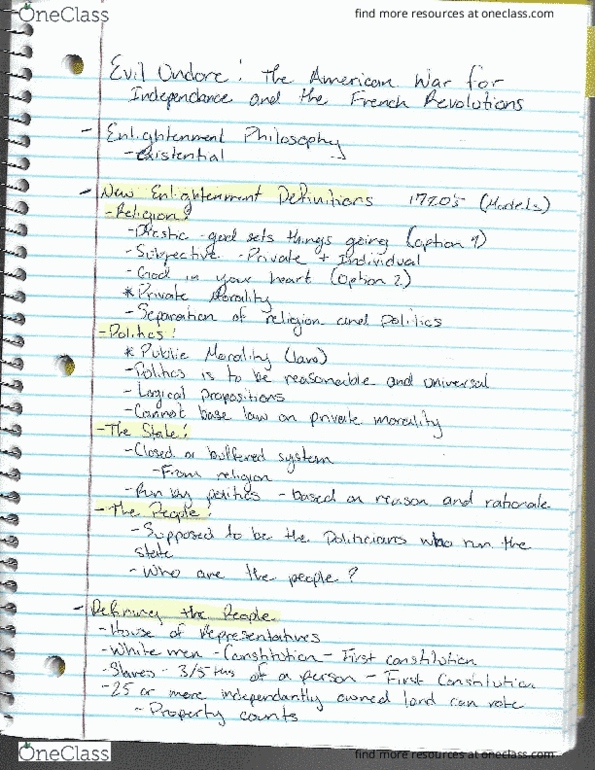 OneClass
find more resources at oneclass.com
Evil Undone: The American War for
Independance and the French Revolutions
- Enlightenment Philosophy
- existential
- New Enlightenment Definitions 1720's (Models)
- Religion:
- Diestic - god sets things going (option 1)
- Subjective - Private + Individual
- God in your heart (option 2)
* Private Morality
- Separation of religion and politics
- Politics:
* Public Morality (law)
- Politics is to be reasonable and universal
- Logical propositions
- Cannot base law on private morality
- The State:
- Closed or buffered system
- From religion
- Run by politics - based on reason and rationale
- The People:
- Supposed to be the politicians who run the
state
- Who are the people?
- Defining the People
- House of Representatives
- White men - Constitution - First constitution
- Slaves - 3/5ths of a person - First Constitution
- 25 or more independantly owned land can vote
- Property counts
OneClass
find more resources at oneclass.com